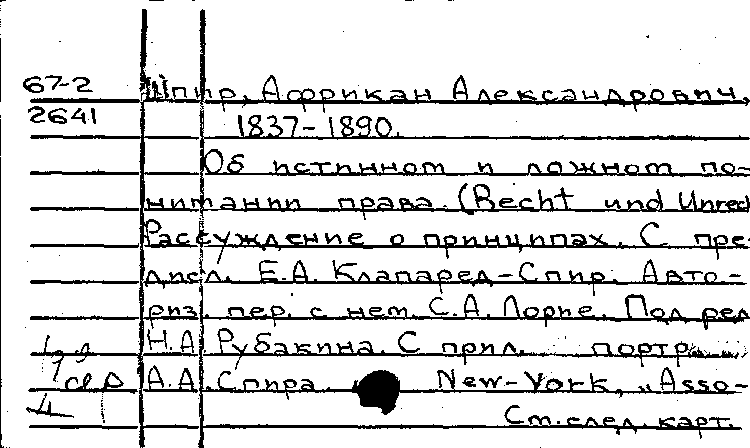 67-2 Шпир, Африкан Александрович,
2641 1837-1890.
Об истинном и ложном по-
нимании права. (Recht und Unrec
Рассуждение о принципах. С пре-
дисл. Е.А. Клапаред-Спир. Авто-
риз. пер. с нем. С.А. Лорие. Под ред
Н.А. Рубакина. С прил. портр.
А.А. Спира. New-York, „Asso-
См. след. карт.